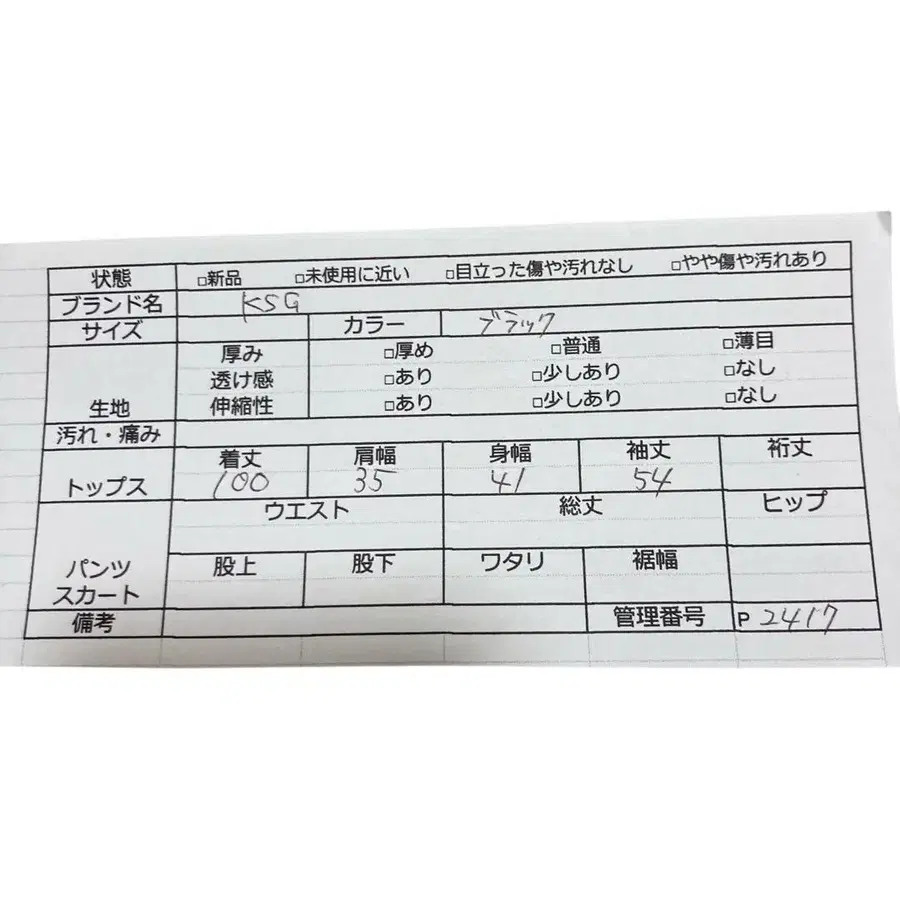 状態 □新品 □未使用に近い □目立った傷や汚れなし □やや傷や汚れあり
ブランド名 KSG
サイズ カラー ブラック
厚み □厚め □普通 □薄目
透け感 □あり □少しあり □なし
生地 伸縮性 □あり □少しあり □なし
汚れ・痛み
着丈 肩幅 身幅 袖丈 裄丈
トップス 100 35 41 54
ウエスト 総丈 ヒップ
パンツ 股上 股下 ワタリ 裾幅
スカート
備考 管理番号 P 2417